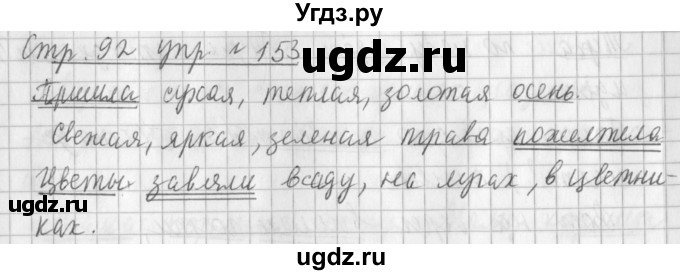 Угдз.ру
Стр. 92 упр № 153
gdz.ru
Пришла сухая, теплая, золотая осень.
Свежая, яркая, зеленая трава пожелтела
Цветы завяли в саду, на лугах, в цветни-
ках.
gdz.ru
gdz.ru
Угдз.ру